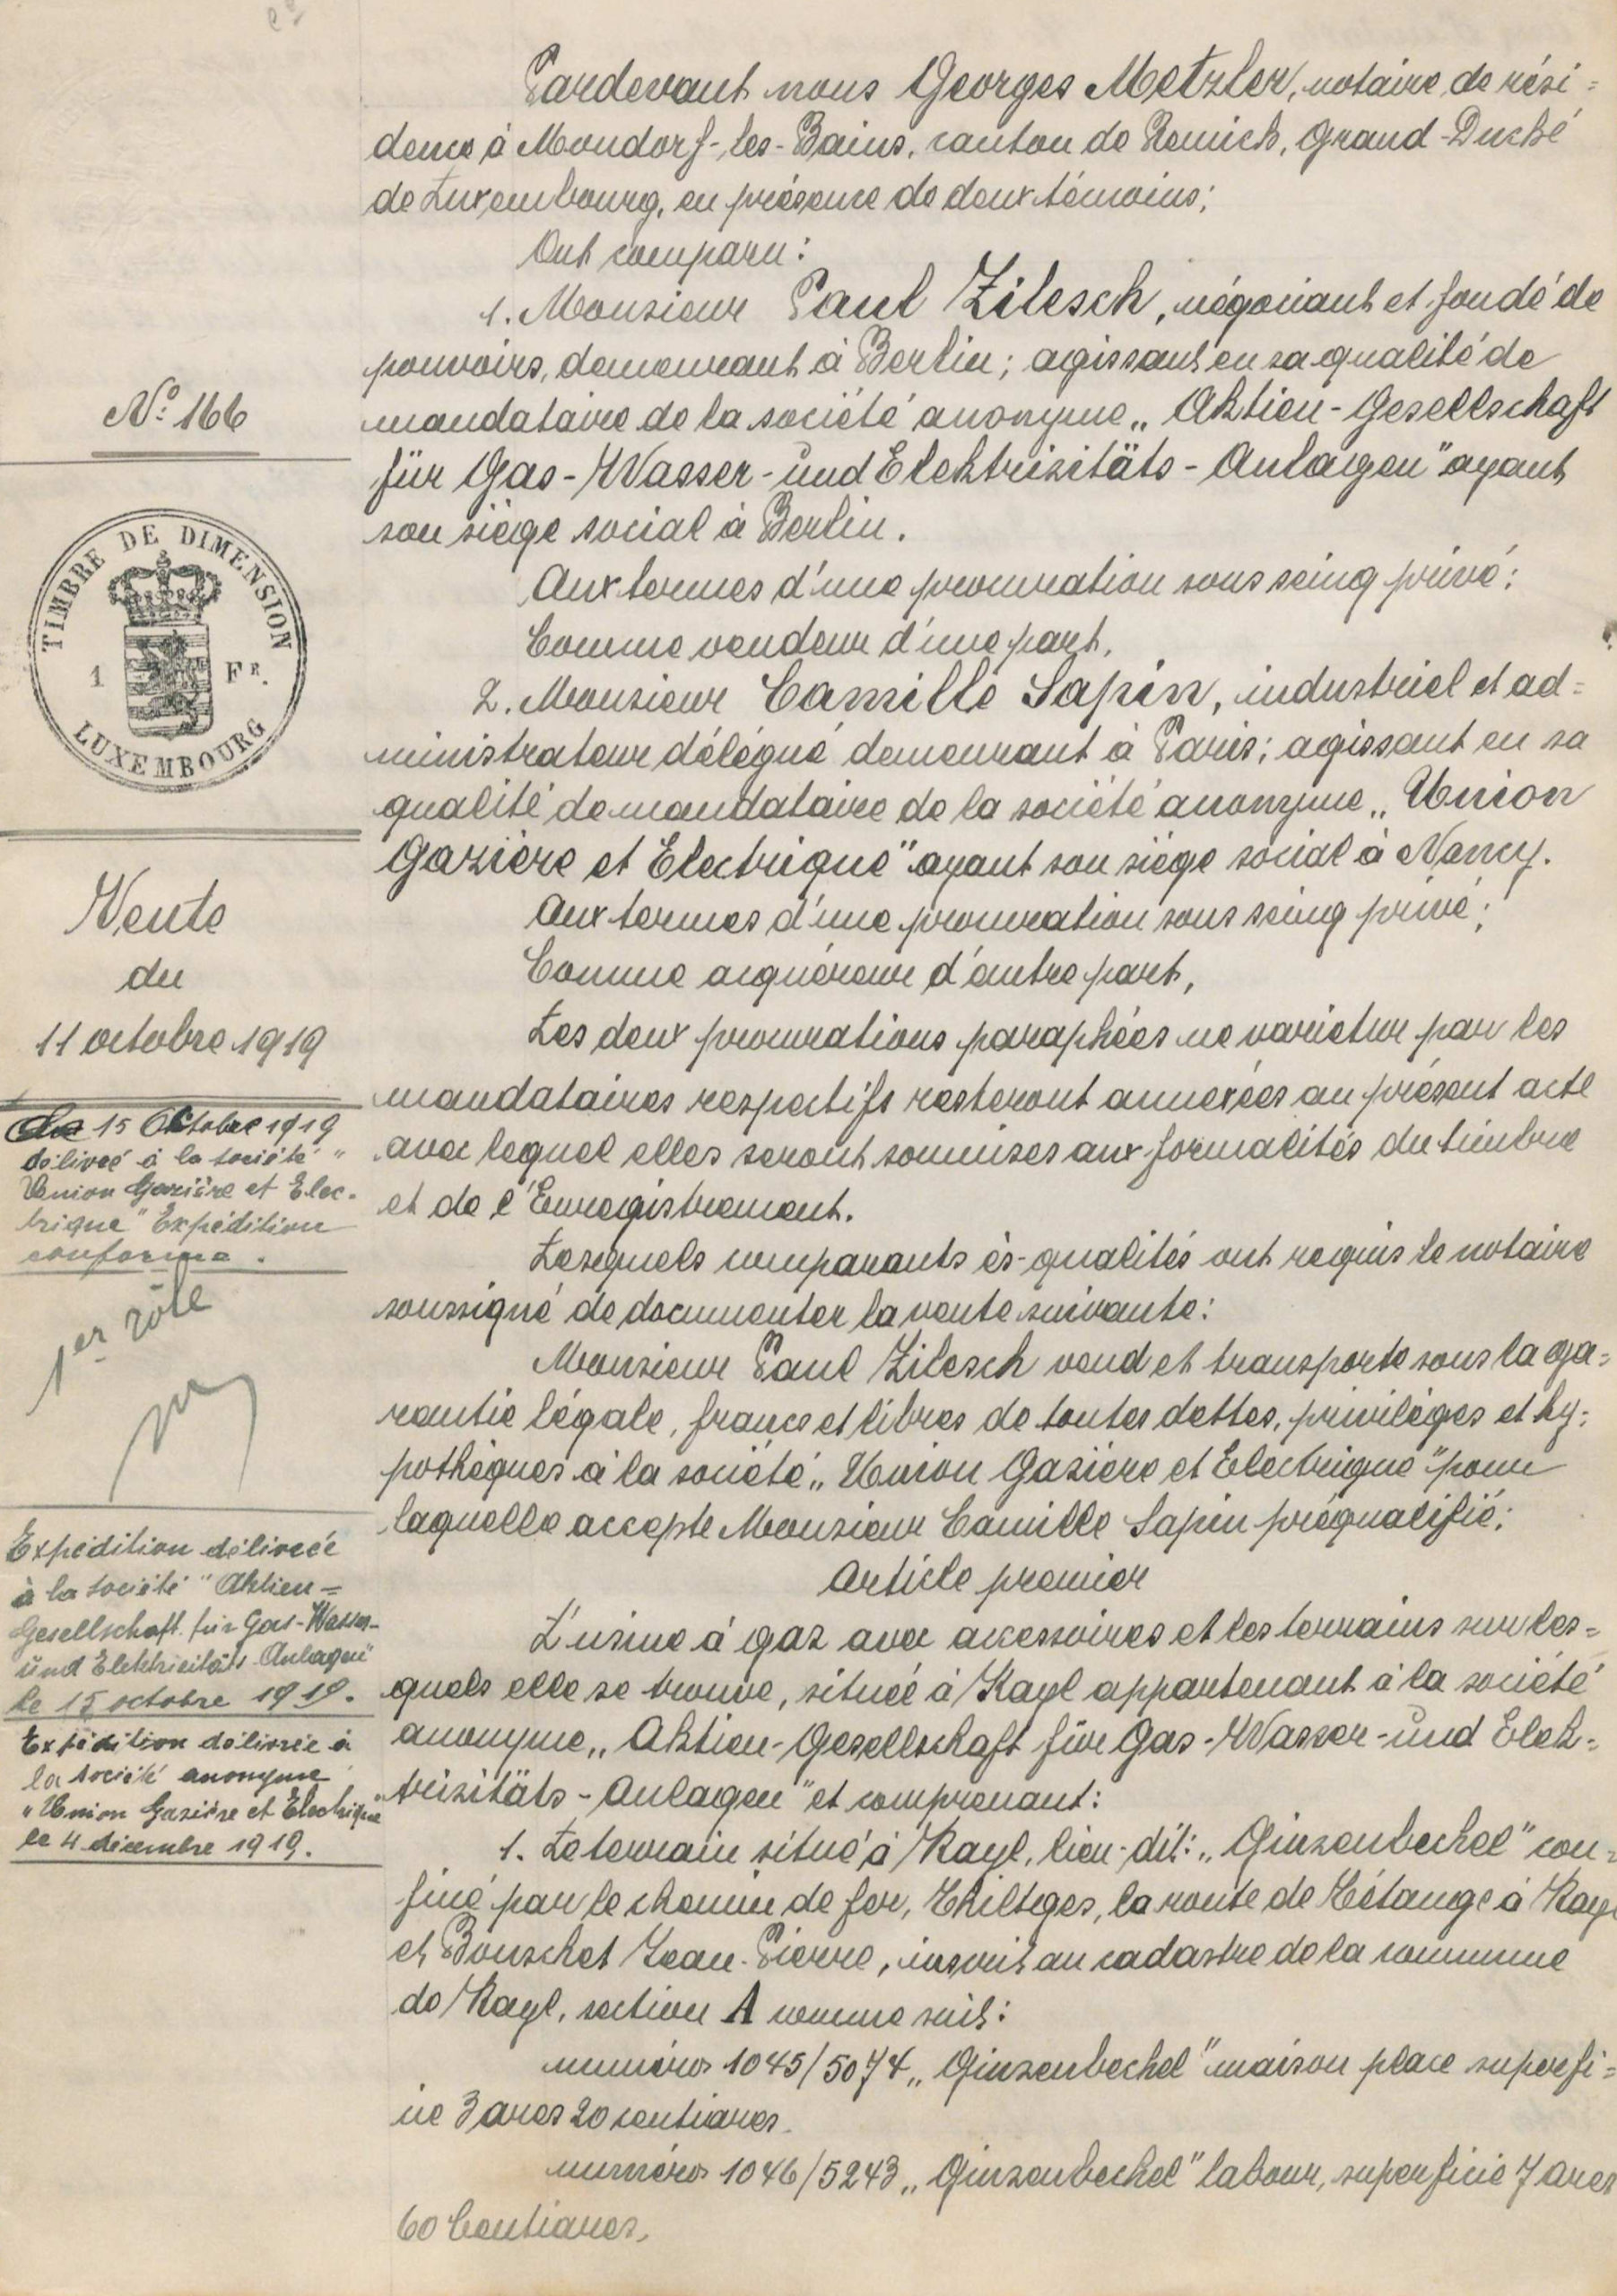 Pardevant nous Georges Metzler, notaire de rési=
dence à Mondorf-les-Bains, canton de Remich, Grand-Duché
de Luxembourg, en présence de deux témoins;
Ont comparu:
1. Monsieur Paul Zilesch, négociant et fondé de
pouvoirs, demeurant à Berlin; agissant en sa qualité de
mandataire de la société anonyme „Aktien-Gesellschaft
für Gas-Wasser-und Elektrizitäts-Anlagen" ayant
son siège social à Berlin.
Aux termes d'une procuration sous seing privé;
Comme vendeur d'une part,
2. Monsieur Camille Sapin, industriel et ad=
ministrateur délégué demeurant à Paris; agissant en sa
qualité de mandataire de la société anonyme „Union
Gazière et Electrique" ayant son siège social à Nancy.
Aux termes d'une procuration sous seing privé;
Comme acquéreur d'autre part,
Les deux procurations paraphées ne varietur par les
mandataires respectifs resteront annexées au présent acte
avec lequel elles seront soumises aux formalités du timbre
et de l'Enregistrement.
Lesquels comparants ès-qualités ont requis le notaire
soussigné de documenter la vente suivante:
Monsieur Paul Zilesch vend et transporte sous la ga=
rantie légale, francs et libres de toutes dettes, privilèges et hy=
pothèques à la société „Union Gazière et Electrique" pour
laquelle accepte Monsieur Camille Sapin préqualifié:
Article premier
L'usine à gaz avec accessoires et les terrains sur les=
quels elle se trouve, située à Kayl appartenant à la société
anonyme „Aktien-Gesellschaft für Gas-Wasser-und Elek=
trizitäts-Anlagen" et comprenant:
1. Le terrain situé à Kayl, lieu-dit: „Ginzenbechel" con=
finé par le chemin de fer, Thiltges, la route de Tétange à Kayl
et Bouschet Jean-Pierre, inscrit au cadastre de la commune
de Kayl, section A comme suit:
numéros 1045/5074 „Ginzenbechel" maison place superfi=
cie 3 ares 20 centiares.
numéros 1046/5243 „Ginzenbechel" labour, superficie 7 ares
60 Centiares,
No: 166
TIMBRE DE DIMENSION
1 FR.
LUXEMBOURG
Vente
du
11 octobre 1919
15 Octobre 1919
délivré à la société "
Union Gazière et Elec-
trique" Expédition
conforme.
1er rôle
Expédition délivrée
à la société "Aktien=
Gesellschaft für Gas-Wasser-
und Elektricitäts-Anlagen"
le 15 octobre 1919.
Expédition délivrée à
la société anonyme
"Union Gazière et Electrique"
le 4 décembre 1919.